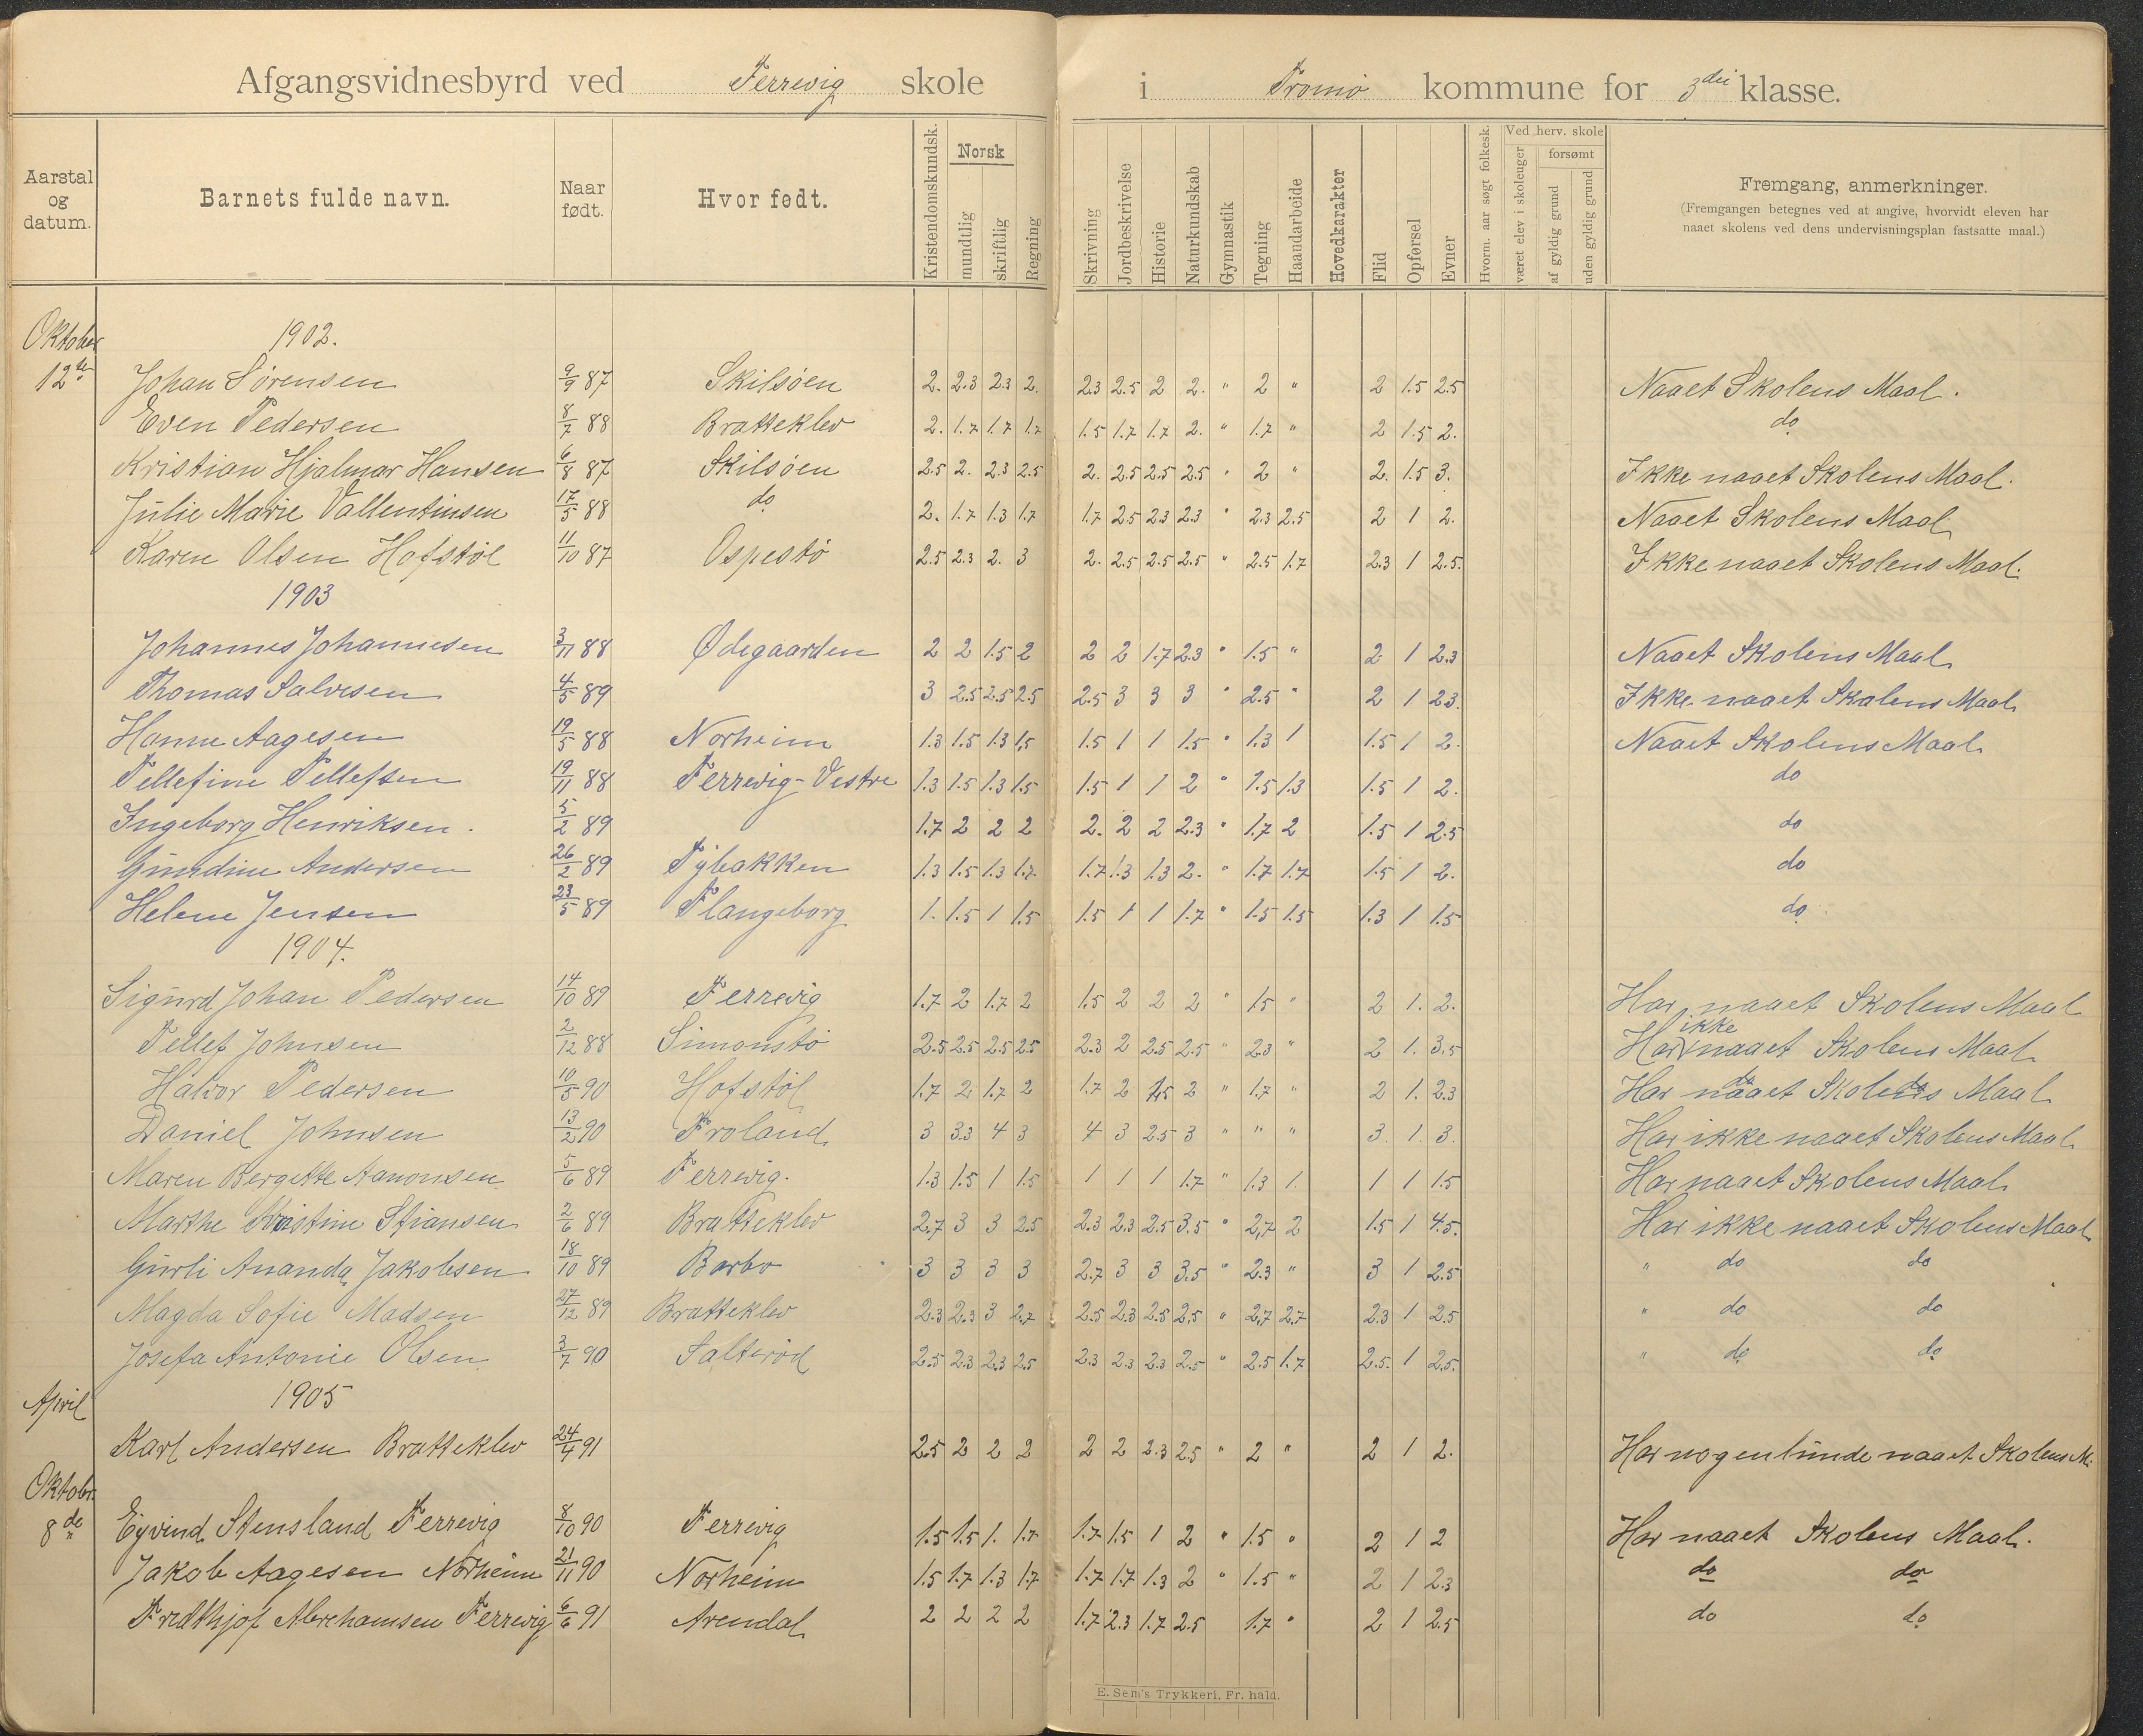 Afgangsvidnesbyrd ved Terrevig skole i Tromø kommune for 3die klasse.
Aarstal og datum. Barnets fulde navn. Naar født. Hvor født. Kristendomskundsk. Norsk mundtlig skriftlig Regning Skrivning Jordbeskrivelse Historie Naturkundskab Gymnastik Tegning Haandarbeide Hovedkarakter Flid Opførsel Evner Hvorm. aar søgt folkesk. Ved herv. skole været elev i skoleuger forsømt af gyldig grund uden gyldig grund Fremgang, anmerkninger.
(Fremgangen betegnes ved at angive, hvorvidt eleven har
naaet skolens ved dens undervisningsplan fastsatte maal.)
Oktober 1902.
12te Johan Sørensen 9/9 87 Skilsøen 2. 2.3 2.3 2. 2.3 2.5 2 2. " 2 " 2 1.5 2.5 Naaet Skolens Maal.
Even Pedersen 8/7 88 Bratteklev 2. 1.7 1.7 1.7 1.5 1.7 1.7 2. " 1.7 " 2 1.5 2. do
Kristian Hjalmar Hansen 6/8 87 Skilsøen 2.5 2. 2.3 2.5 2. 2.5 2.5 2.5 " 2 " 2. 1.5 3. Ikke naaet Skolens Maal.
Julie Marie Vallentinsen 17/5 88 do 2. 1.7 1.3 1.7 1.7 2.5 2.3 2.3 " 2.3 2.5 2 1 2. Naaet Skolens Maal
Karen Olsen Hofstøl 11/10 87 Ospestø 2.5 2.3 2. 3 2. 2.5 2.5 2.5 " 2.5 1.7 2.3 1 2.5. Ikke naaet Skolens Maal.
1903
Johannes Johannesen 3/11 88 Ødegaarden 2 2 1.5 2 2 2 1.7 2.3 " 1.5 " 2 1 2.3 Naaet Skolens Maal
Thomas Salvesen 4/5 89 3 2.5 2.5 2.5 2.5 3 3 3 " 2.5 " 2 1 2.3. Ikke naaet Skolens Maal
Hanne Aagesen 19/5 88 Norheim 1.3 1.5 1.3 1,5 1.5 1 1 1.5 " 1.3 1 1.5 1 2. Naaet Skolens Maal
Tellefine Tellefsen 19/11 88 Terrevig-Vestre 1.3 1.5 1.3 1.5 1.5 1 1 2 " 1.5 1.3 1.5 1 2. do
Ingeborg Henriksen. 5/2 89 1.7 2 2 2 2. 2 2 2.3 " 1.7 2 1.5 1 2.5 do
Gundine Andersen 26/2 89 Tybakken 1.3 1.5 1.3 1.7 1.7 1.3 1.3 2. " 1.7 1.7 1.5 1 2. do
Helene Jensen 23/5 89 Flangeborg 1. 1.5 1 1.5 1.5 1 1 1.7 " 1.5 1.5 1.3 1 1.5 do
1904.
Sigurd Johan Pedersen 14/10 89 Terrevig 1.7 2 1.7 2 1.5 2 2 2 " 1.5 " 2 1. 2. Har naaet Skolens Maal
Tellef Johnsen 2/12 88 Simonstø 2.5 2.5 2.5 2.5 2.3 2 2.5 2.5 " 2.3 " 2 1. 3.5 Har ikke naaet Skolens Maal
Halvor Pedersen 10/5 90 Hofstøl 1.7 2 1.7 2 1.7 2 1.5 2 " 1.7 " 2 1. 2.3 Har naaet Skolens Maal
Daniel Johnsen 13/2 90 Froland 3 3.3 4 3 4 3 2.5 3 " " " 3. 1. 3. Har ikke naaet Skolens Maal
Maren Bergitte Aanonsen 5/6 89 Terrevig. 1.3 1.5 1 1.5 1 1 1 1.7 " 1.3 1. 1 1 1.5 Har naaet Skolens Maal
Marthe Kristine Stiansen 2/6 89 Bratteklev 2.7 3 3 2.5 2.3 2.3 2.5 3.5 " 2,7 2 1.5 1 4.5. Har ikke naaet Skolens Maal
Gurli Ananda Jakobsen 18/10 89 Barbo 3 3 3 3 2.7 3 3 3.5 " 2.3 " 3 1 2.5 " do do
Magda Sofie Madsen 27/12 89 Bratteklev 2.3 2.3 3 2.7 2.5 2.3 2.5 2,5 " 2,7 2,7 2.3 1 2.5 " do do
Josefa Antonie Olsen 3/7 90 Salterød 2.5 2.3 2.3 2.5 2.3 2.3 2.3 2.5 " 2.5 1.7 2.5. 1 2.5. " do do
April 1905
Karl Andersen Bratteklev 24/4 91 2.5 2 2 2 2 2 2.3 2.5 " 2 " 2 1 2. Har nogenlunde naaet Skolens M.
Oktober
8de Eyvind Stensland Terrevig 8/10 90 Terrevig 1.5 1.5 1. 1.7 1.7 1.5 1 2 " 1.5 " 2 1 2 Har naaet Skolens Maal.
Jakob Aagesen Norheim 21/11 90 Norheim 1.5 1.7 1.3 1.7 1.7 1.7 1.3 2 " 1.5 " 2 1 2.3 do do
Fredthjof Abrehamsen Terrevig 6/6 91 Arendal 2 2 2 2 1.7 2.3 1.7 2.5 1.7 " 2 1 2.5 do do
E. Sem's Trykkeri, Fr. hald.